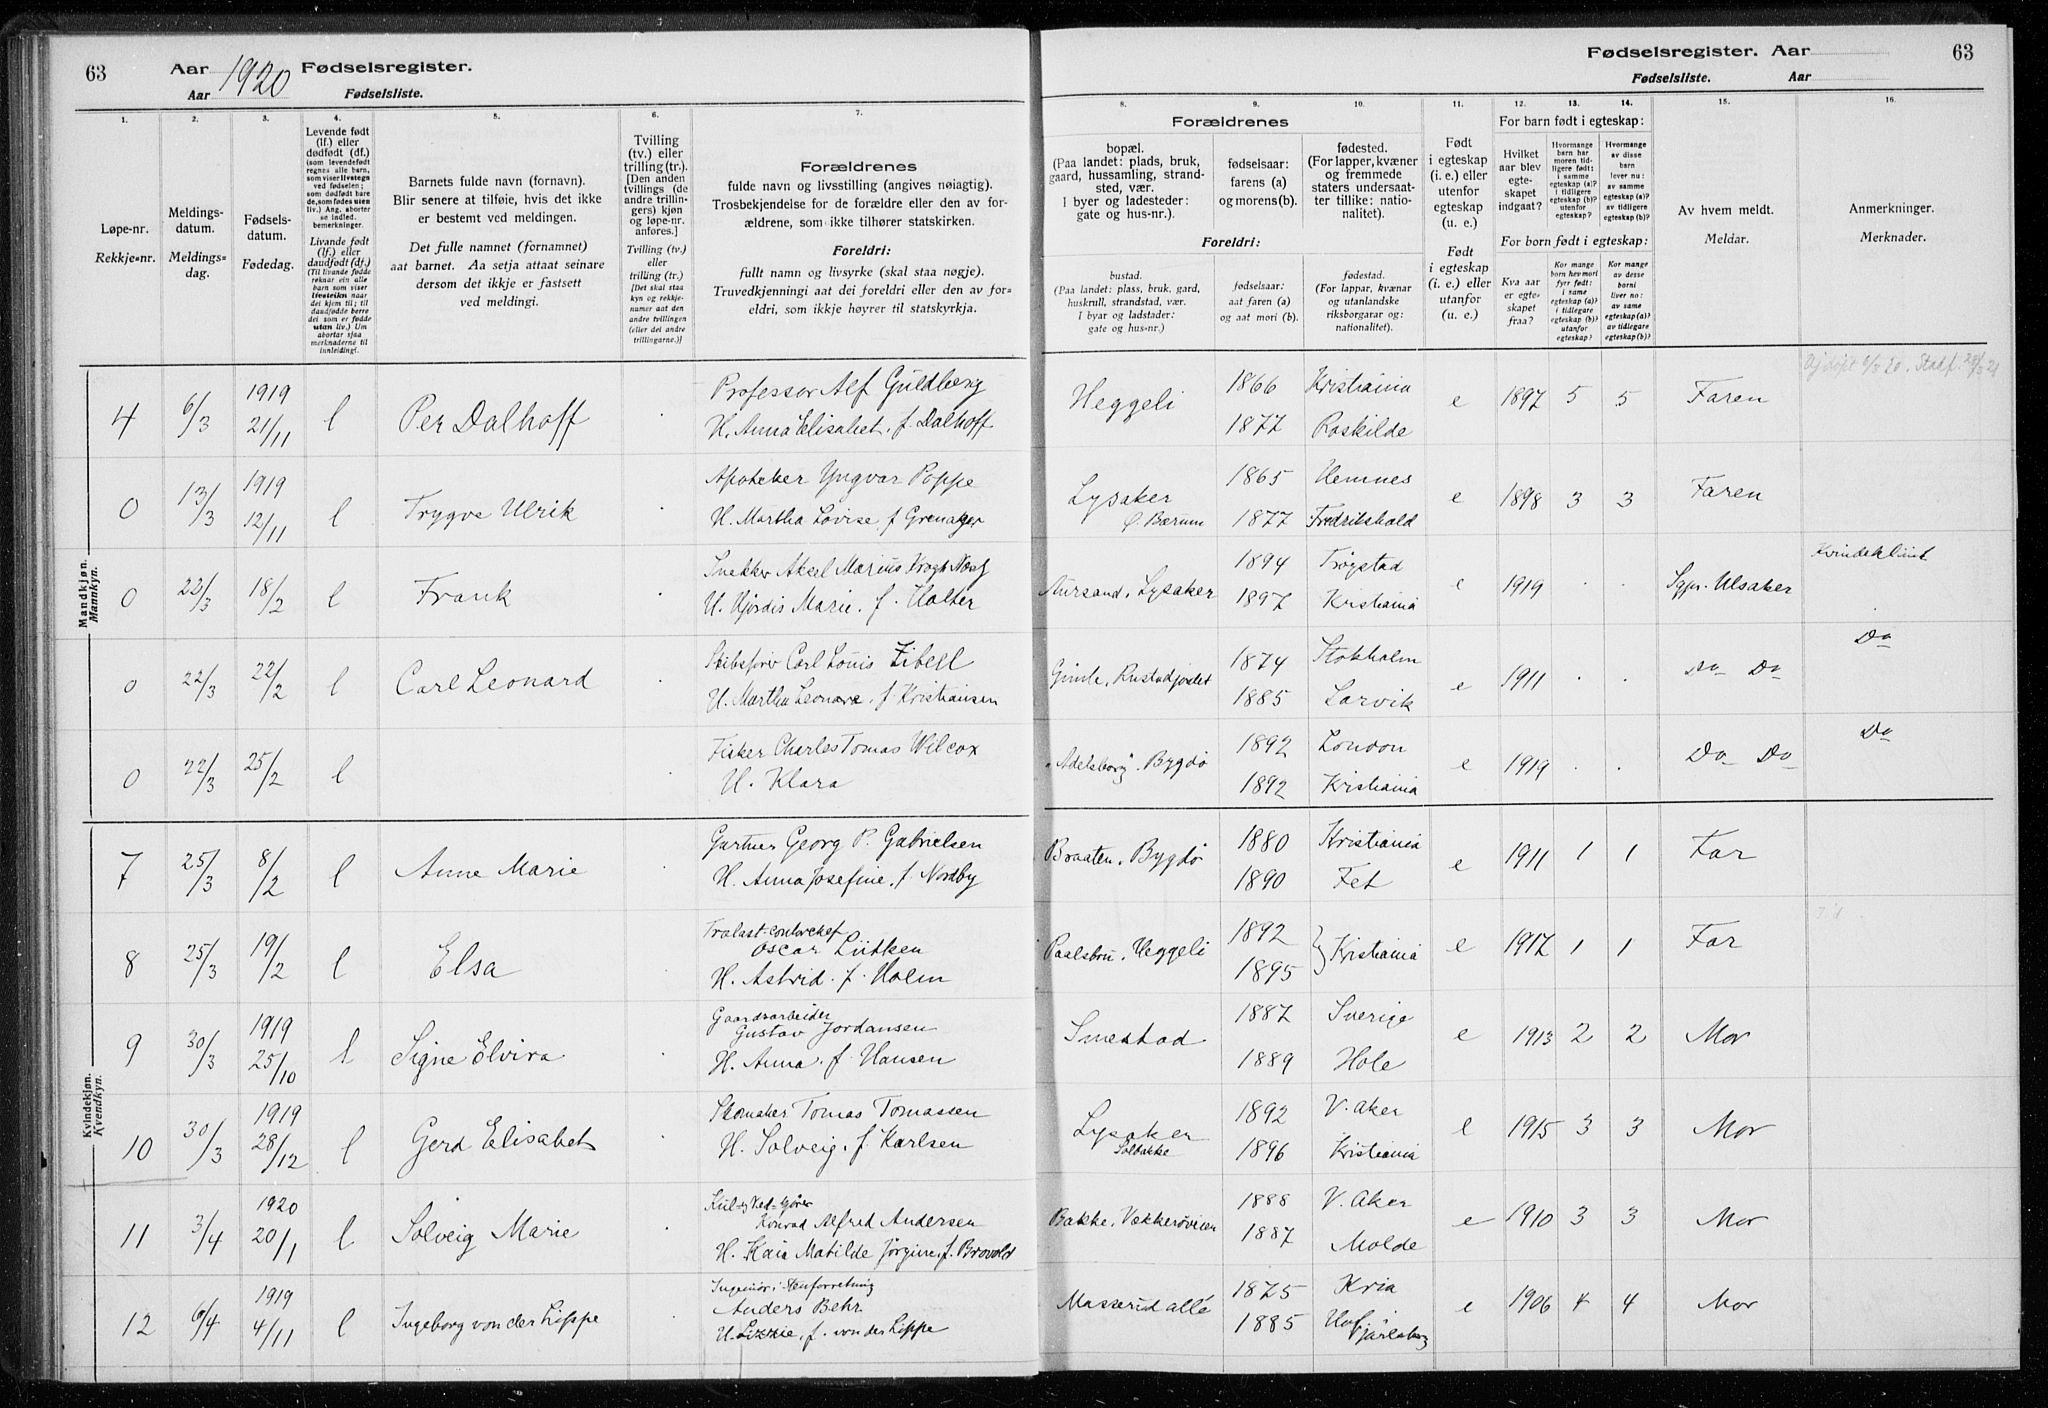 63
Aar 1920 Fødselsregister.
Aar
Fødselsliste.
1.
2.
3.
4.
5.
6.
7.
Løpe-nr.
Rekkje=nr.
Meldings-
datum.
Meldings=
dag.
Fødsels-
datum.
Fødedag.
Levende født
(lf.) eller
dødfødt (df.)
(som levendefødt
regnes alle barn,
som viser livstegn
ved fødselen;
som dødfødt bare
de, som fødes uten
liv.) Ang. aborter
se indled.
bemerkninger.
Livande født
(lf.) eller
daudfødt (df.)
(Til livande fødde
reknar ein alle
barn som viser
livsteikn naar
dei kjem til; til
daudfødde berre
dei som er fødde
utan liv.) Um
abortar sjaa
merknaderne til
innleiding!
Barnets fulde navn (fornavn).
Blir senere at tilføie, hvis det ikke
er bestemt ved meldingen.
Det fulle namnet (fornamnet)
aat barnet. Aa setja attaat seinare
dersom det ikkje er fastsett
ved meldingi.
Tvilling
(tv.) eller
trilling (tr.)
[Den anden
tvillings (de
andre trillin-
gers) kjøn
og løpe-nr.
anføres.]
Tvilling (tv.)
eller
trilling (tr.)
[Det skal staa
kyn og rekkje-
numer aat den
andre tvillingen
(eller dei andre
trillingarne.)]
Forældrenes
fulde navn og livsstilling (angives nøiagtig).
Trosbekjendelse for de forældre eller den av for-
ældrene, som ikke tilhører statskirken.
Foreldri:
fullt namn og livsyrke (skal staa nøgje).
Truvedkjenningi aat dei foreldri eller den av for=
eldri, som ikkje høyrer til statskyrkja.
Mandkjøn.
Mannkyn.
4 6/3 1919 21/11 l Per Dalhoff Professor Alf Guldberg
H. Anna Elisabet, f. Dalhoff
0 13/3 1919 12/11 l Trygve Ulrik Apoteker Yngvar Poppe
H. Martha Lovise, f. Grenager
0 22/3 18/2 l Frank Snekker Aksel Marius Krogh
H. Hjördis Marie, f. Halter
0 22/3 22/2 l Carl Leonard Skibsfører Carl Louis Zibell
H. Martha Leonore, f. Kristiansen
0 22/3 25/2 l Fisker Charles Tomas Wilcox
H. Klara
Kvindekjøn.
Kvendkyn.
7 25/3 8/2 l Anne Marie Gartner Georg P. Gabrielsen
H. Anna Josefine, f. Nordby
8 25/3 19/2 l Elsa
Oscar Lütken
H. Astrid. f. Holm
9 30/3 1919 25/10 l Signe Elvira Gaardsarbeider
Gustav Jordansen
H. Anna, f. Hansen
10 30/3 1919 28/12 l Gerd Elisabet Skomaker Tomas Tomassen
H. Solveig, f. Karlsen
11 3/4 1920 20/1 l Solveig Marie
Konrad Alfred Andersen
H. Kaia Matilde Jørgine, f. Brovold
12 6/4 1919 4/11 l Ingeborg von der Lippe Ingeniør i Stenforretning
Anders Behr
H. Lizzie, f. von der Lippe
Fødselsregister. Aar
63
Fødselsliste. Aar
8.
9.
10.
11.
12.
13.
14.
15.
16.
Forældrenes
bopæl.
(Paa landet: plads, bruk,
gaard, hussamling, strand-
sted, vær.
I byer og ladesteder:
gate og hus-nr.).
fødselsaar:
farens (a)
og morens(b).
fødested.
(For lapper, kvæner
og fremmede
staters undersaat-
ter tillike: natio-
nalitet).
Foreldri:
bustad.
(Paa landet: plass, bruk, gard,
huskrull, strandstad, vær.
I byar og ladstader:
gate og hus-nr.)
fødselsaar:
aat faren (a)
og aat mori (b).
fødestad.
(For lappar, kvænar
og utanlandske
riksborgarar og:
nationalitet).
Født
i egteskap
(i. e.) eller
utenfor
egteskap
(u. e.)
Født
i egteskap
(i. e.) eller
utanfor
(u. e.)
For barn født i egteskap:
Hvilket
aar blev
egte-
skapet
indgaat?
Hvormange
barn har
moren tid-
ligere født:
i samme
egteskap (a)?
i tidligere
egteskap (b)?
utenfor
egteskap?
Hvormange
av disse
barn
lever nu:
av samme
egteskap (a)?
av tidligere
egteskap (b)?
For born født i egteskap:
Kva aar
er egte-
skapet
fraa?
Kor mange
barn hev mori
fyrr født:
i same
egteskap (a)?
i tidlegare
egteskap (b)?
utanfor
egteskap?
Kor mange
av desse
borni
liver no:
av same
egteskap (a)?
av tidlegare
egteskap (b)?
Av hvem meldt.
Meldar.
Anmerkninger.
Merknader.
Heggeli 1866 Kristiania e 1897 5 5 Faren
1877 Roskilde
Lysaker 1865 Hemnes e 1898 3 3 Faren
Ø. Bærum 1877 Fredrikshald
Aursand, Lysaker 1894 Trøgstad e 1919 . . Sgpr. Ulsaker Kvindeklinik
1897 Kristiania
Gimle, Rustadjordet 1874 Stokholm e 1911 . . Do Do Do
1885 Larvik
"Adelsborg", Bygdø 1892 London e 1919 . . Do Do Do
1892 Kristiania
Braaten, Bygdø 1880 Kristiania e 1911 1 1 Far
1890 Fet
Paalsbru, Heggeli 1892 } Kristiania e 1917 1 1 Far
1895
Smestad 1887 Sverige e 1913 2 2 Mor
1889 Hole
Lysaker 1892 V. Aker e 1915 3 3 Mor
Solbakke 1896 Kristiania
Bakke, Vækkerøveien 1888 V. Aker e 1910 3 3 Mor
1887 Molde
Masserud allé 1875 Kria e 1906 4 4 Mor
1885 Hof Jarlsberg